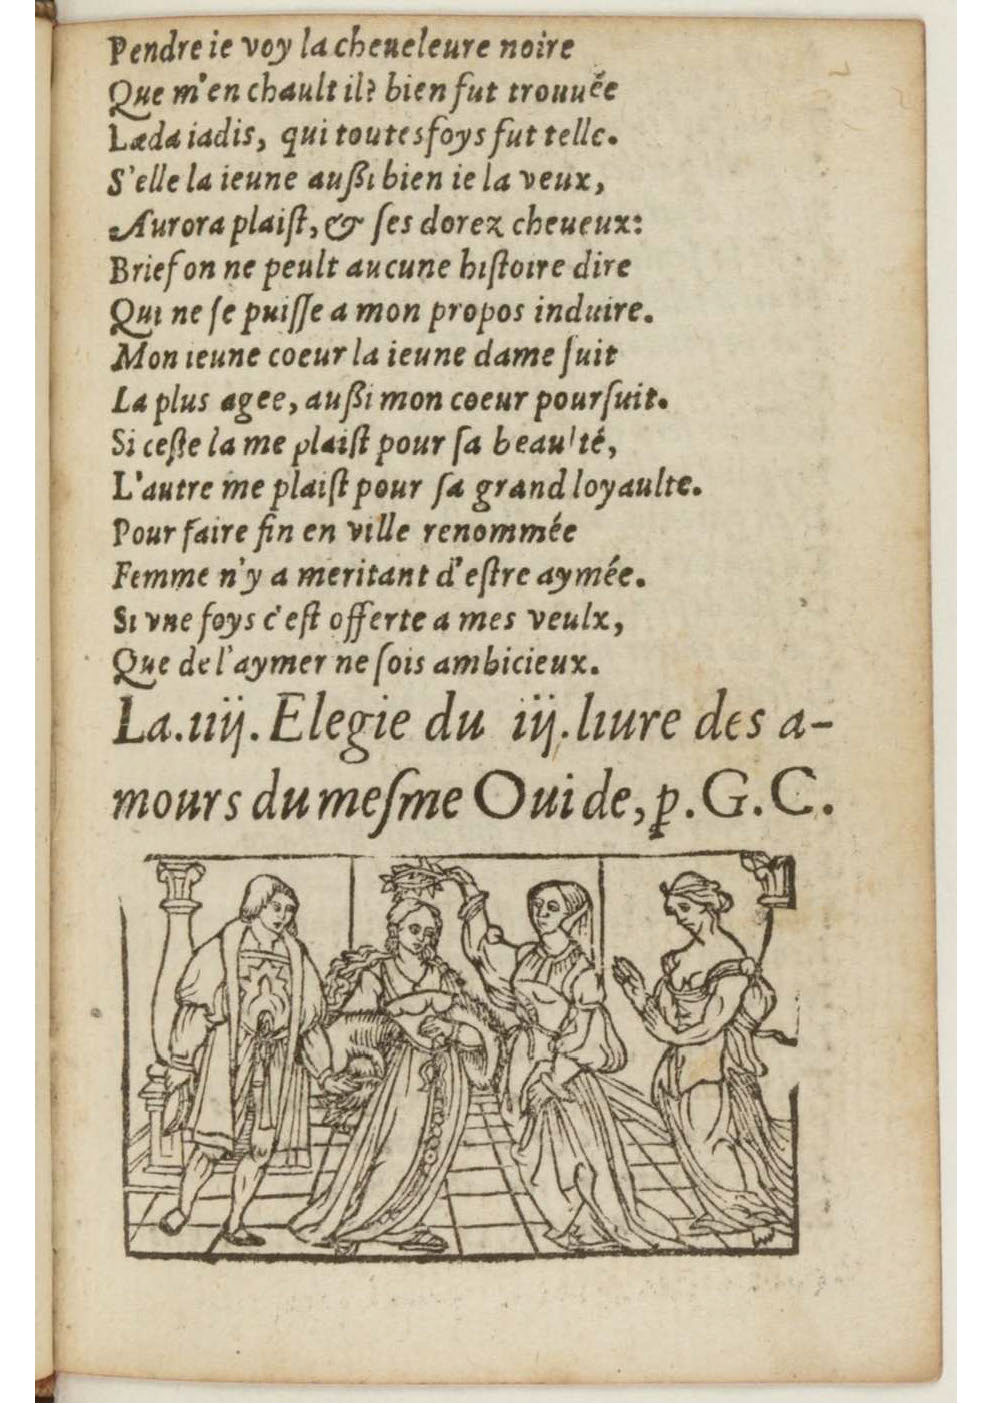 Pendre ie voy la cheueleure noire
Que m'en chault il? bien fut trouuée
Læda iadis, qui toutesfoys fut telle.
S'elle la ieune außi bien ie la veux,
Aurora plaiſt, & ſes dorez cheueux:
Brief on ne peult aucune hiſtoire dire
Qui ne ſe puiſſe a mon propos induire.
Mon ieune coeur la ieune dame ſuit
La plus agee, außi mon coeur pourſuit.
Si ceſte la me plaiſt pour ſa beaulté,
L'autre me plaiſt pour ſa grand loyaulte.
Pour faire fin en ville renommée
Femme n'y a meritant d'eſtre aymée.
Si vne foys c'eſt offerte a mes veulx,
Que de l'aymer ne ſois ambicieux.
La.iiij.Elegie du iij.liure des a-
mours du meſme Ouide, p.G.C.